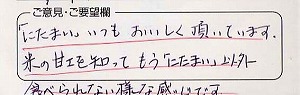 ご意見・ご要望欄
「にたまい」いつもおいしく頂いています。
米の甘エを知ってもう「にたまい」以外
食べられない様な感じです。